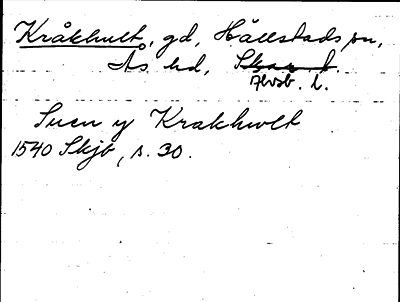 Kråkhult, gd, Hällstads sn,
Ås hd, Skar. l.
Älvsb. l.
Suen y Krakhwlt
1540 Skjb, s. 30.